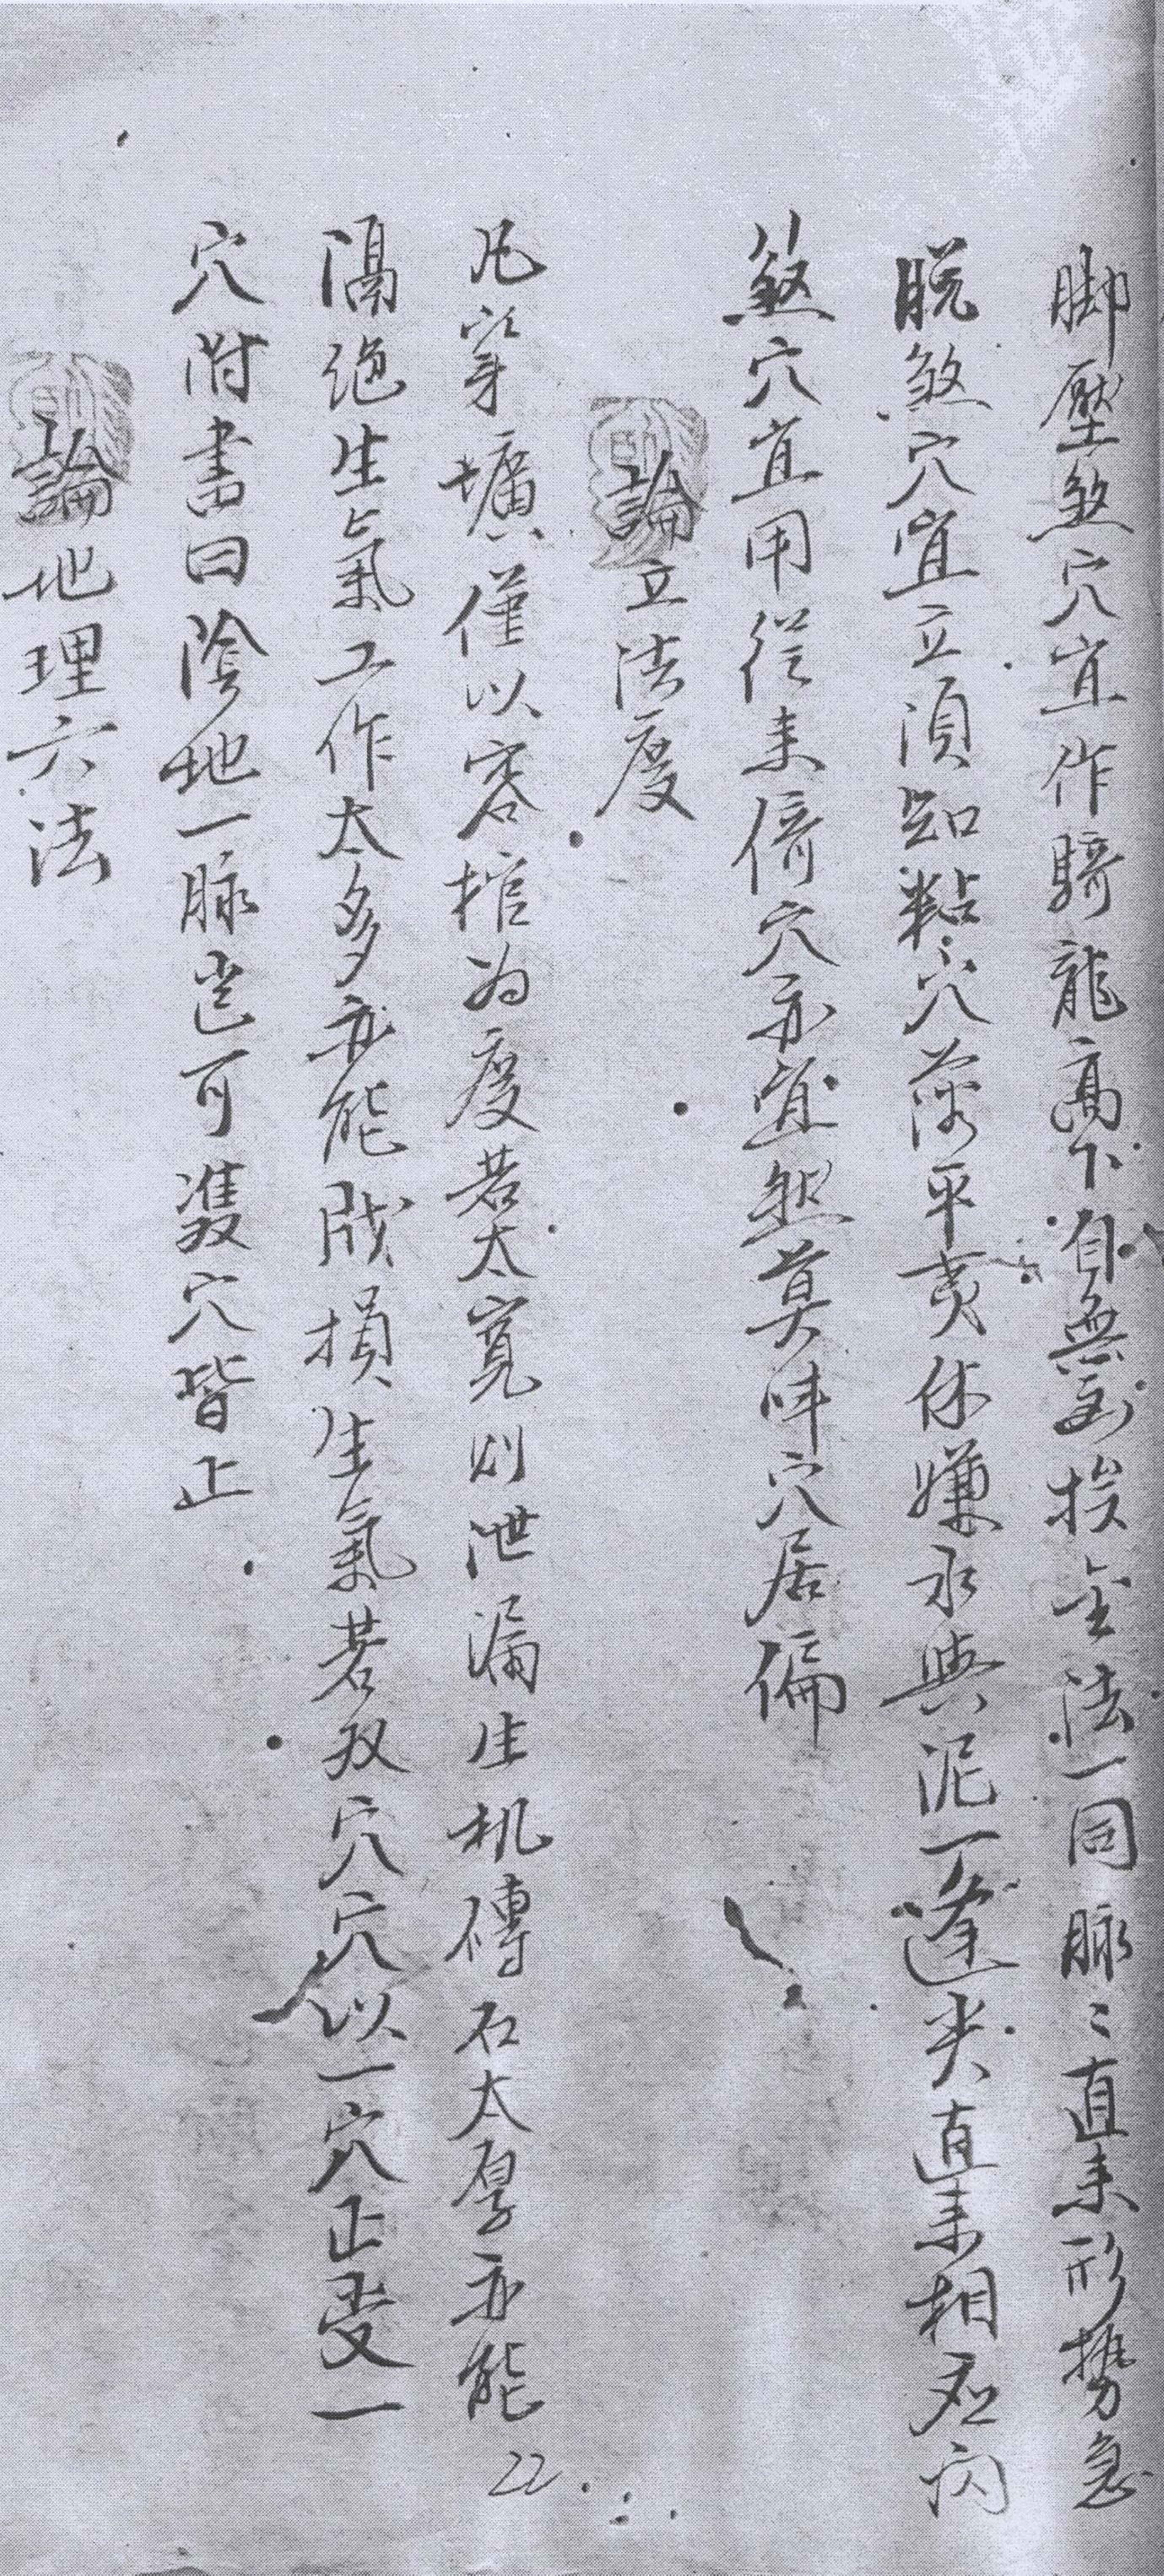 脚壓煞穴宜作騎龍高下自無差挨金法一同脉〻直来形勢急
脱煞穴宜立須知粘穴落平夷休嫌水與泥一逢尖直来相忌闪
煞穴宜用從来倚穴亦宜然莫味穴居偏
論立法度
凡穿壙僅以容棺为度若太寬则泄漏生机磚石太厚亦能
隔绝生氣工作太多亦能戕損生氣若双穴穴以一穴正受一
穴附書曰陰地一脉岂可雙穴皆正
論地理六法
22